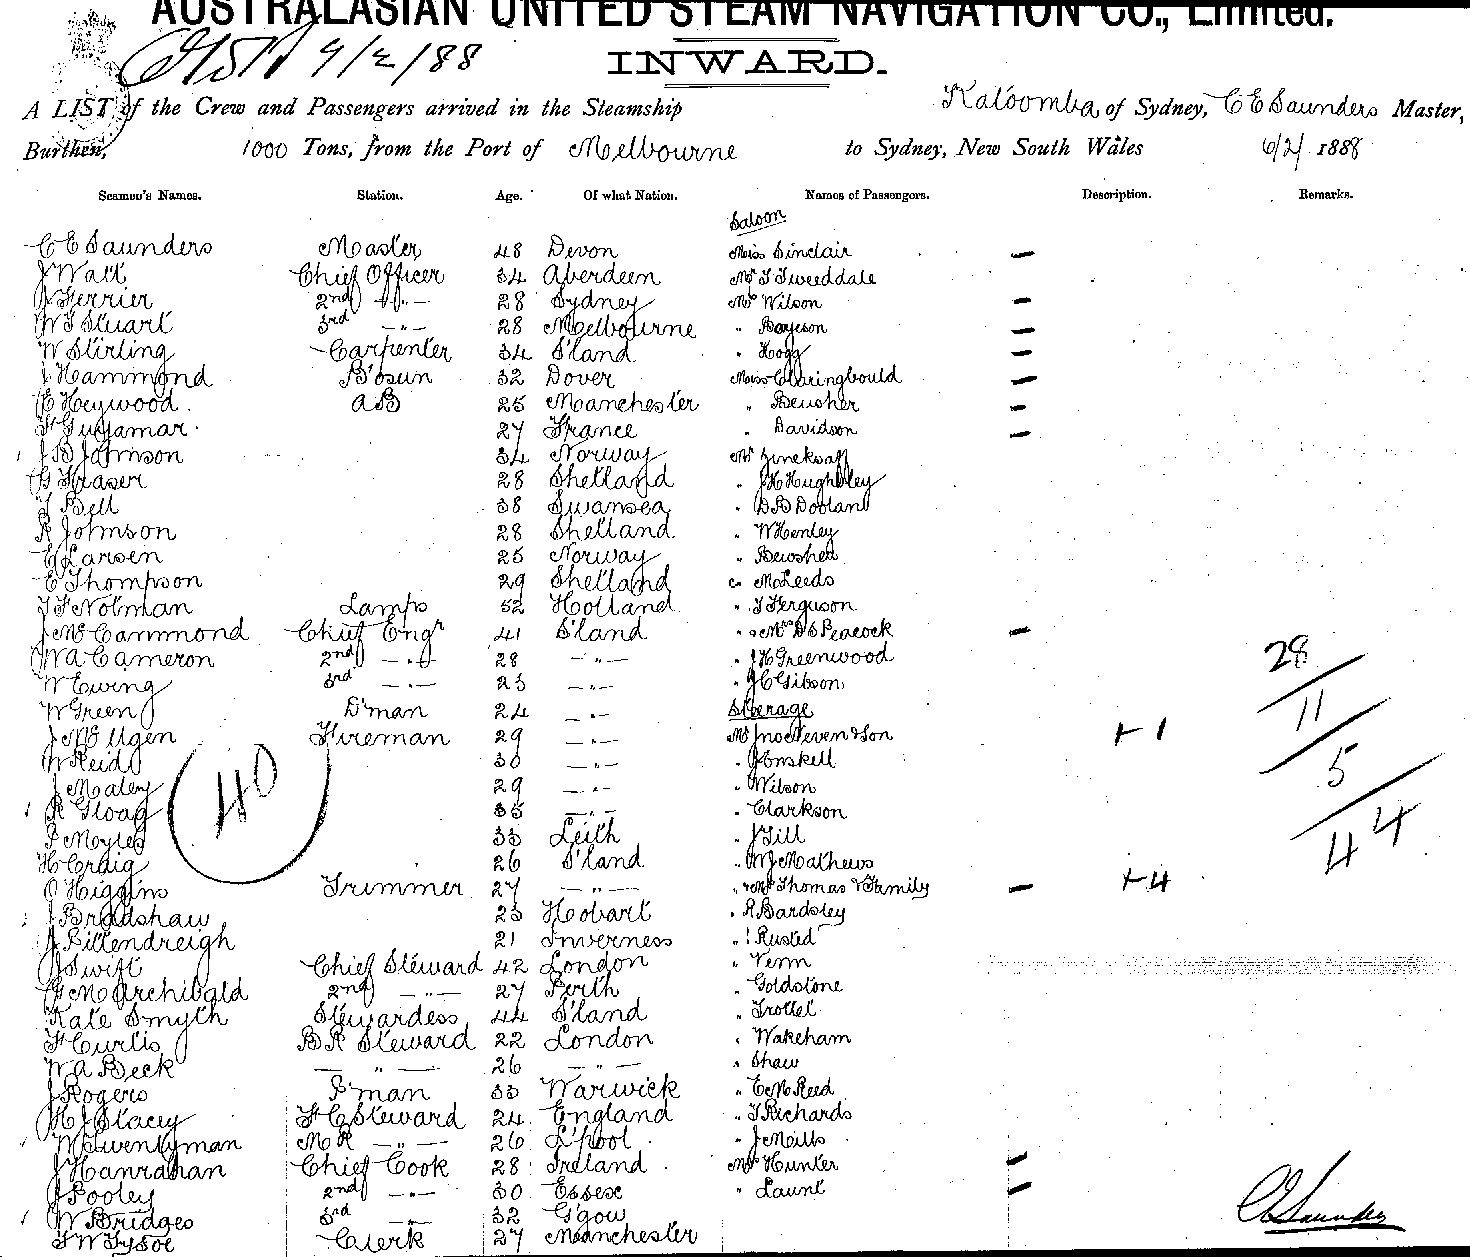 AUSTRALASIAN UNITED STEAM NAVIGATION CO., Limited.
9/2/88
INWARD.
A LIST of the Crew and Passengers arrived in the Steamship Katoomba of Sydney, C E Saunders Master,
Burthen, 1000 Tons, from the Port of Melbourne to Sydney, New South Wales 6/2/ 1888
Seamen's Names. Station. Age. Of what Nation. Names of Passengers. Description. Remarks.
Saloon
C E Saunders Master 48 Devon Miss Sinclair —
J Watt Chief Officer 34 Aberdeen Mr T Tweeddale
J Ferrier 2nd -"- 28 Sydney Mrs Wilson —
W T Stuart 3rd -"- 28 Melbourne " Bayeson —
W Stirling Carpenter 34 S'land " Hogg —
J Hammond B'osun 32 Dover Miss Claringbould —
E Heywood AB 25 Manchester " Beusher —
27 France " Davidson —
J B Johnson 34 Norway Mr
G Fraser 28 Shetland "
T Bell 38 Swansea "
R Johnson 28 Shetland " W Henley
E Larsen 25 Norway " Bewsher
E Thompson 29 Shetland " McLeods
Lamps 52 Holland " T Ferguson
J McCammond Chief Engr 41 S'land " & Mrs D S Peacock —
W A Cameron 2nd -"- 28 -"- " J H Greenwood 28
W Ewing 3rd -"- 23 -"- " J C Gibson
W Green D'man 24 -"- Steerage 11
Fireman 29 -"- Mr Jno Neven & Son +1
W Reid 30 -"- "
J Maley 29 -"- " Wilson 5
R Gloag 40 35 -"- " Clarkson
P Moyles 33 Leith " J Gill 44
H Craig 26 S'land " W J Mathews
O Higgins Trimmer 27 -"- " & Mrs Thomas & Family — +4
J Bradshaw 23 Hobart " R Bardsley
J Bittendreigh 21 Inverness " Rusted
J Swift Chief Steward 42 London " Venn
G M Archibald 2nd -"- 27 Perth " Goldstone
Kate Smyth Stewardess 44 S'land " Trottel
F Curtis B R Steward 22 London " Wakeham
W A Beck -"- 26 -"- " Shaw
J Rogers P'man 33 Warwick " E McReed
H J Stacey F C Steward 24 England " T Richards
W Twentyman M R -"- 26 L'pool " J Meills
J Hanrahan Chief Cook 28 Ireland Mrs Hunter —
J Pooley 2nd -"- 30 Essex " Launt —
W Bridges 3rd -"- 32 G'gow
T W Tysoe Clerk 27 Manchester
C E Saunders